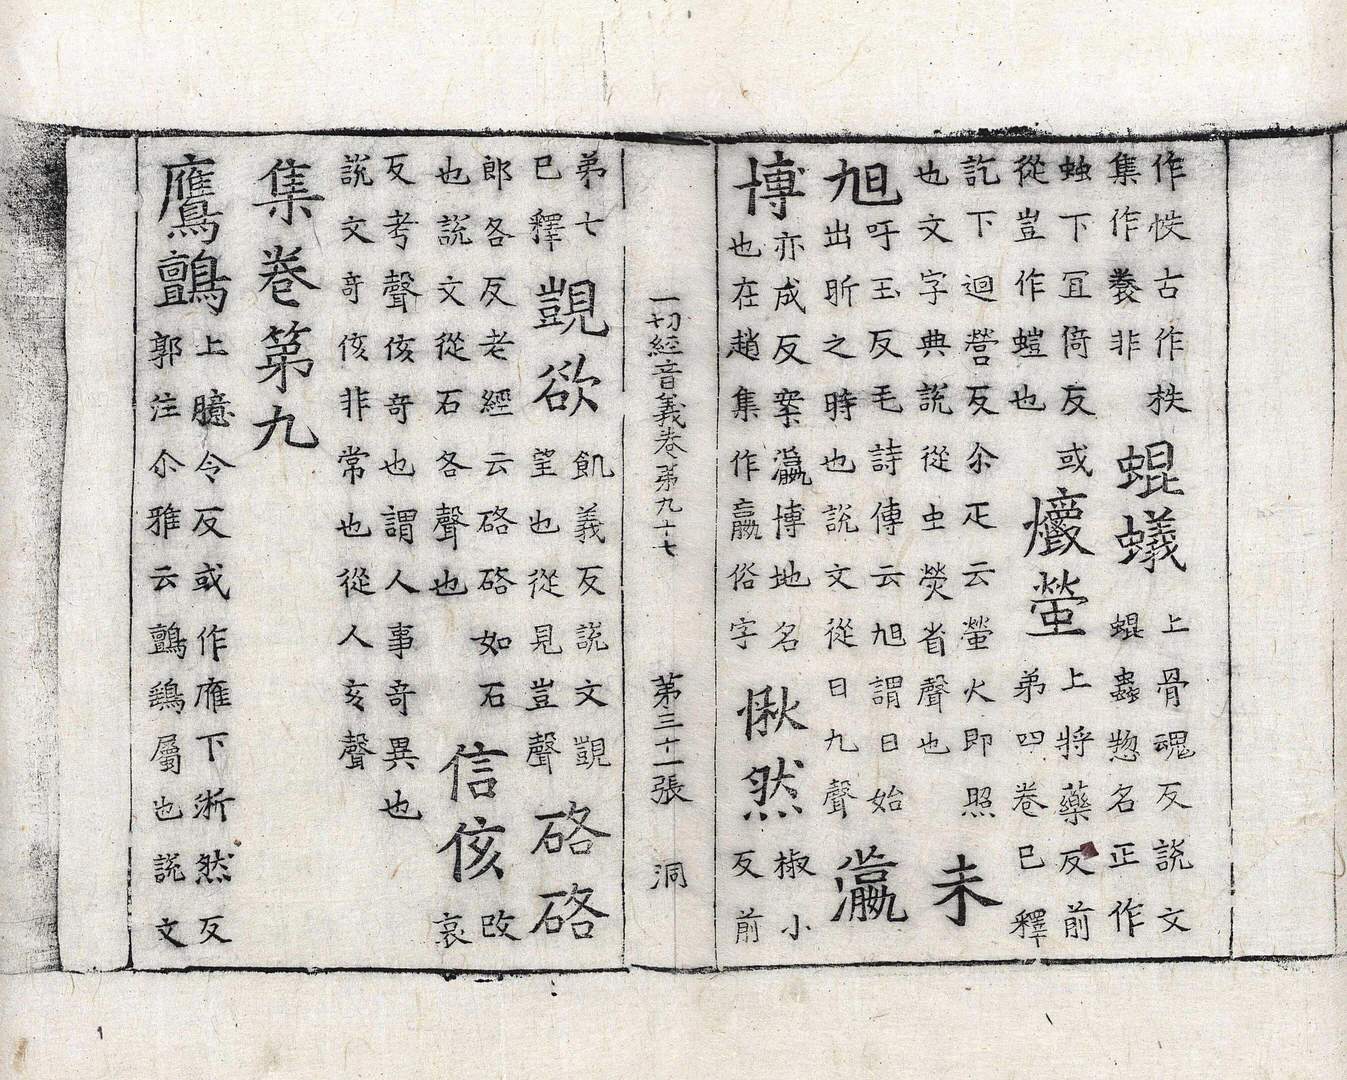 作怢古作柣集作養非蜫蟻上骨魂反說文蜫蟲惣名正作
䖵下冝倚反或從豈作螘也爝螢上將藥反前弟四卷已釋
訖下迴營反尒疋云螢火即照也文字典說從虫熒省聲也未
旭吁玉反毛詩傳云旭謂日始出昕之時也說文從日九聲瀛
博亦成反案瀛博地名也在趙集作嬴俗字愀然椒小反前
一切經音義卷第九十七 第三十一張 洞
弟七已釋覬欲飢義反說文覬望也從見豈聲硌硌
郎各反老經云硌硌如石也說文從石各聲也信侅改哀
反考聲侅奇也謂人事奇異也說文奇侅非常也從人亥聲
集卷第九
鷹鸇上臆令反或作䧹下淅然反郭注尒雅云鸇鷂屬也說文